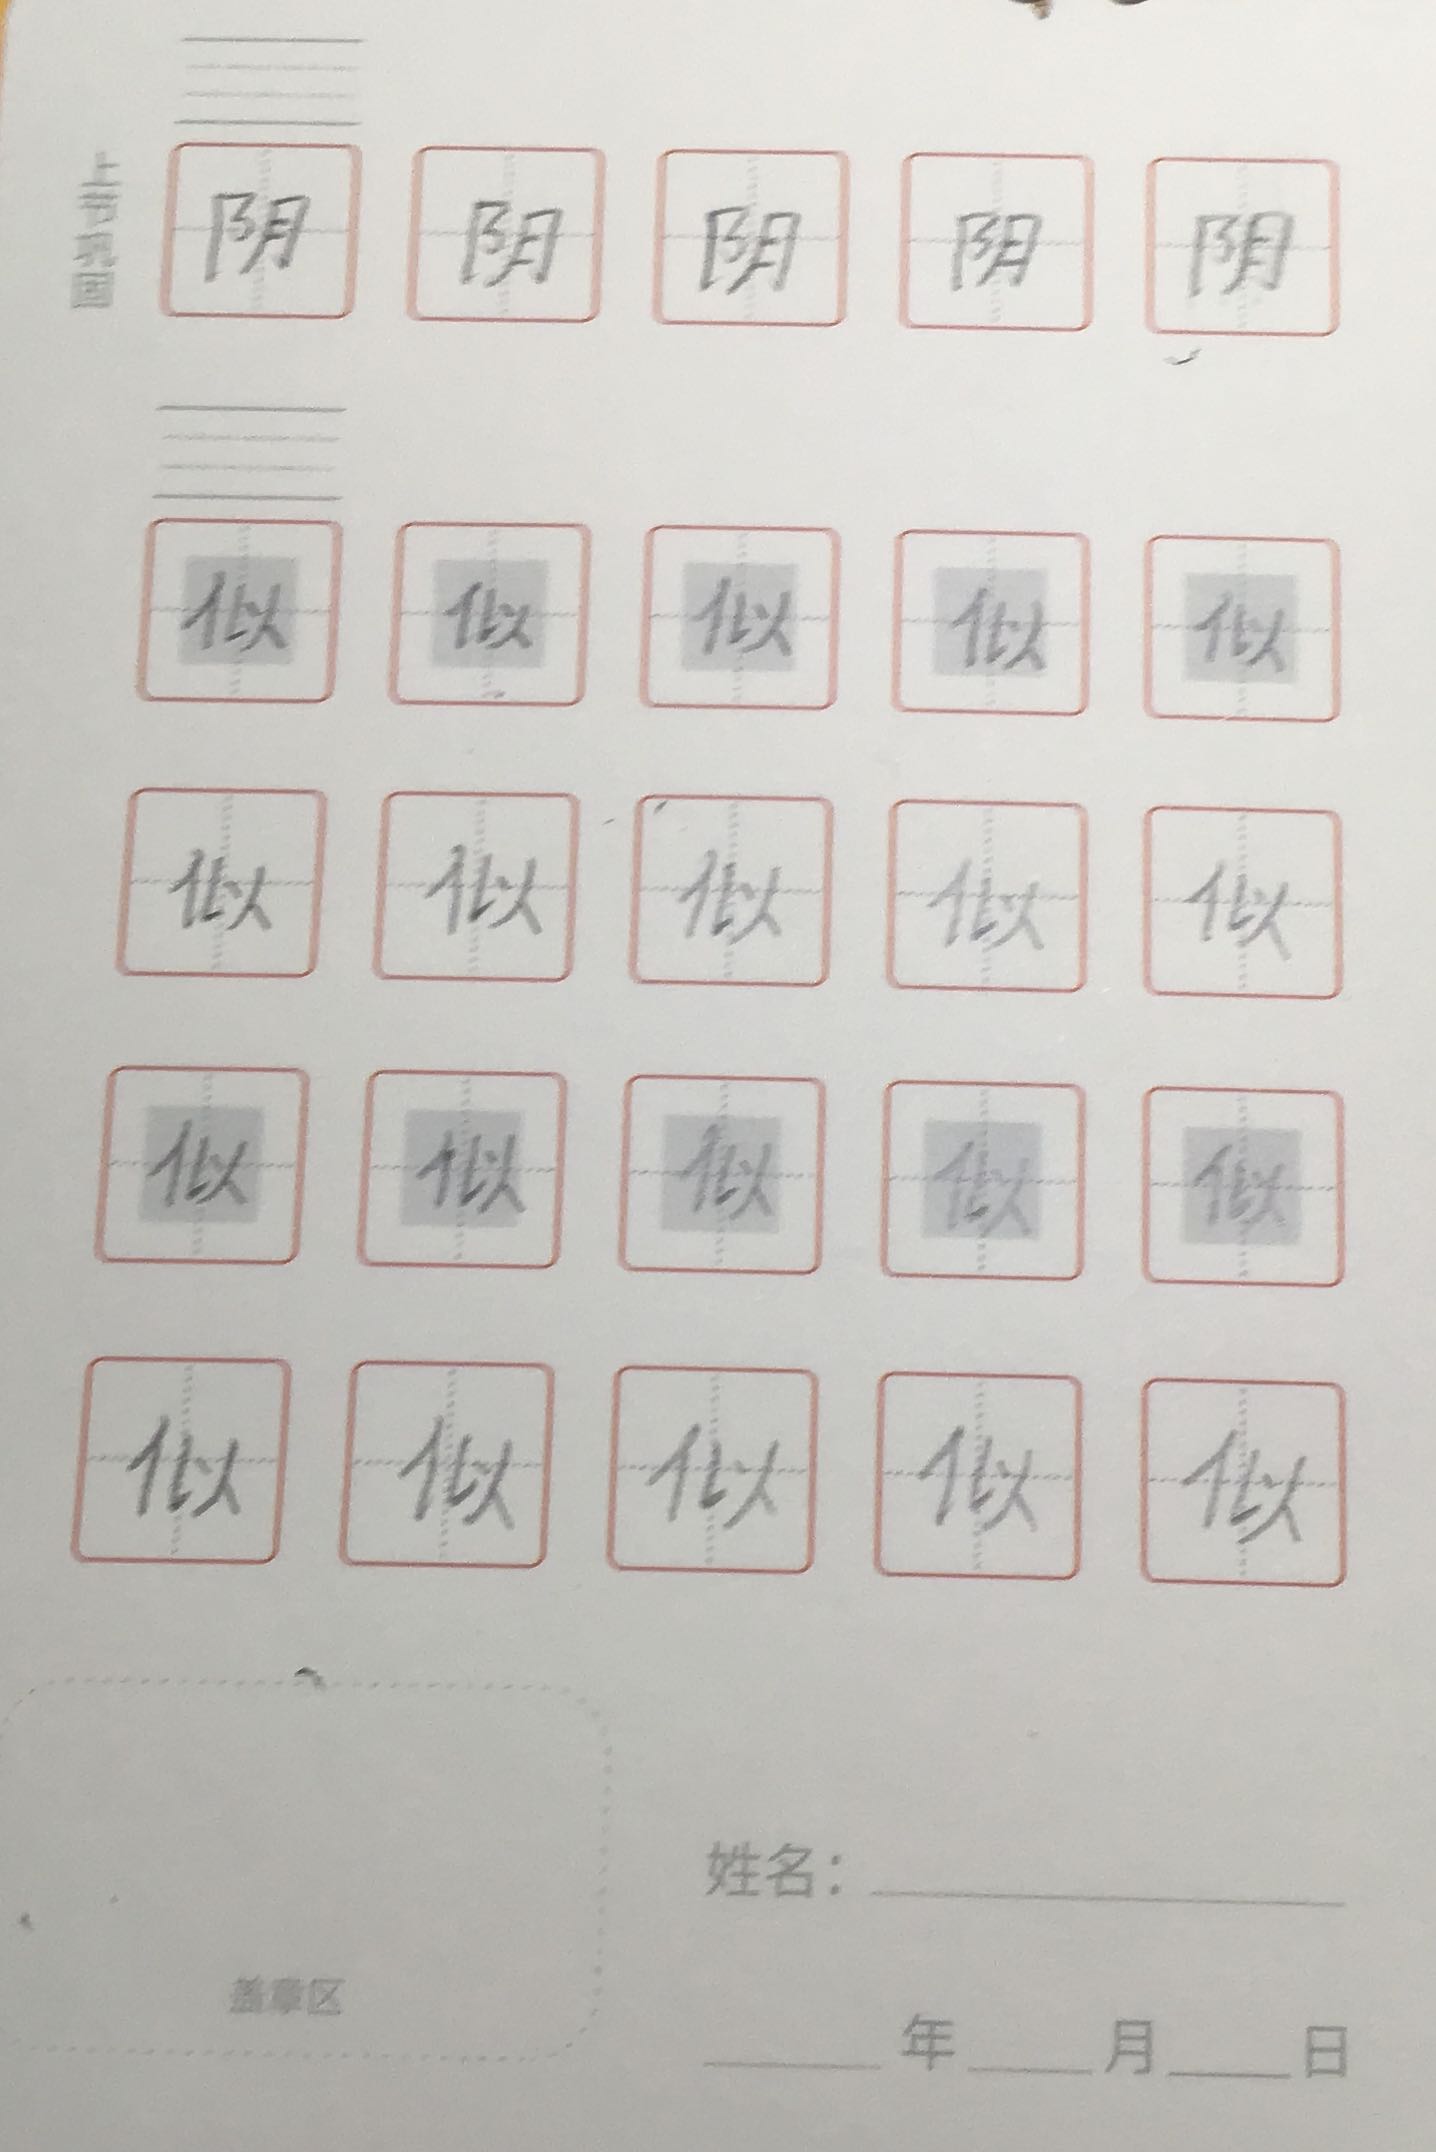 阴 阴 阴 阴 阴
似 似 似 似 似
似 似 似 似 似
似 似 似 似 似
似 似 似 似 似
姓名：
盖章区
年 月 日